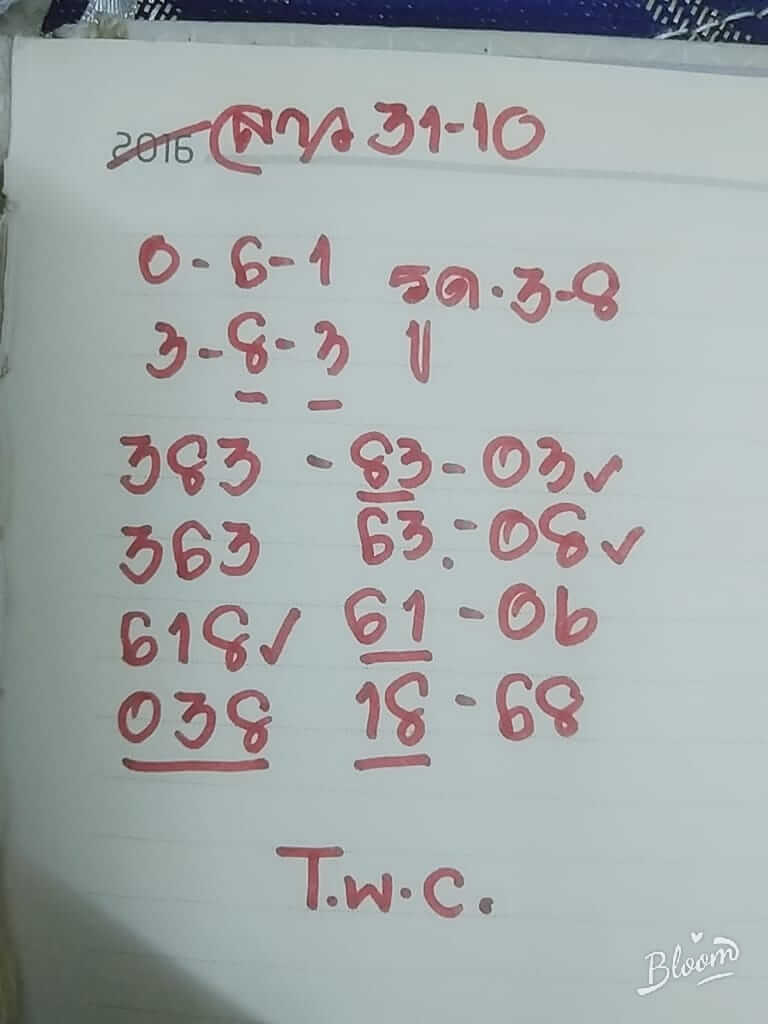 2016 ลาว 31-10
0-6-1 รูด.3-8
3-8-3 ป
383 - 83-03✓
363 63.-08✓
618✓ 61-06
038 18-68
T.W.C.
Bloom